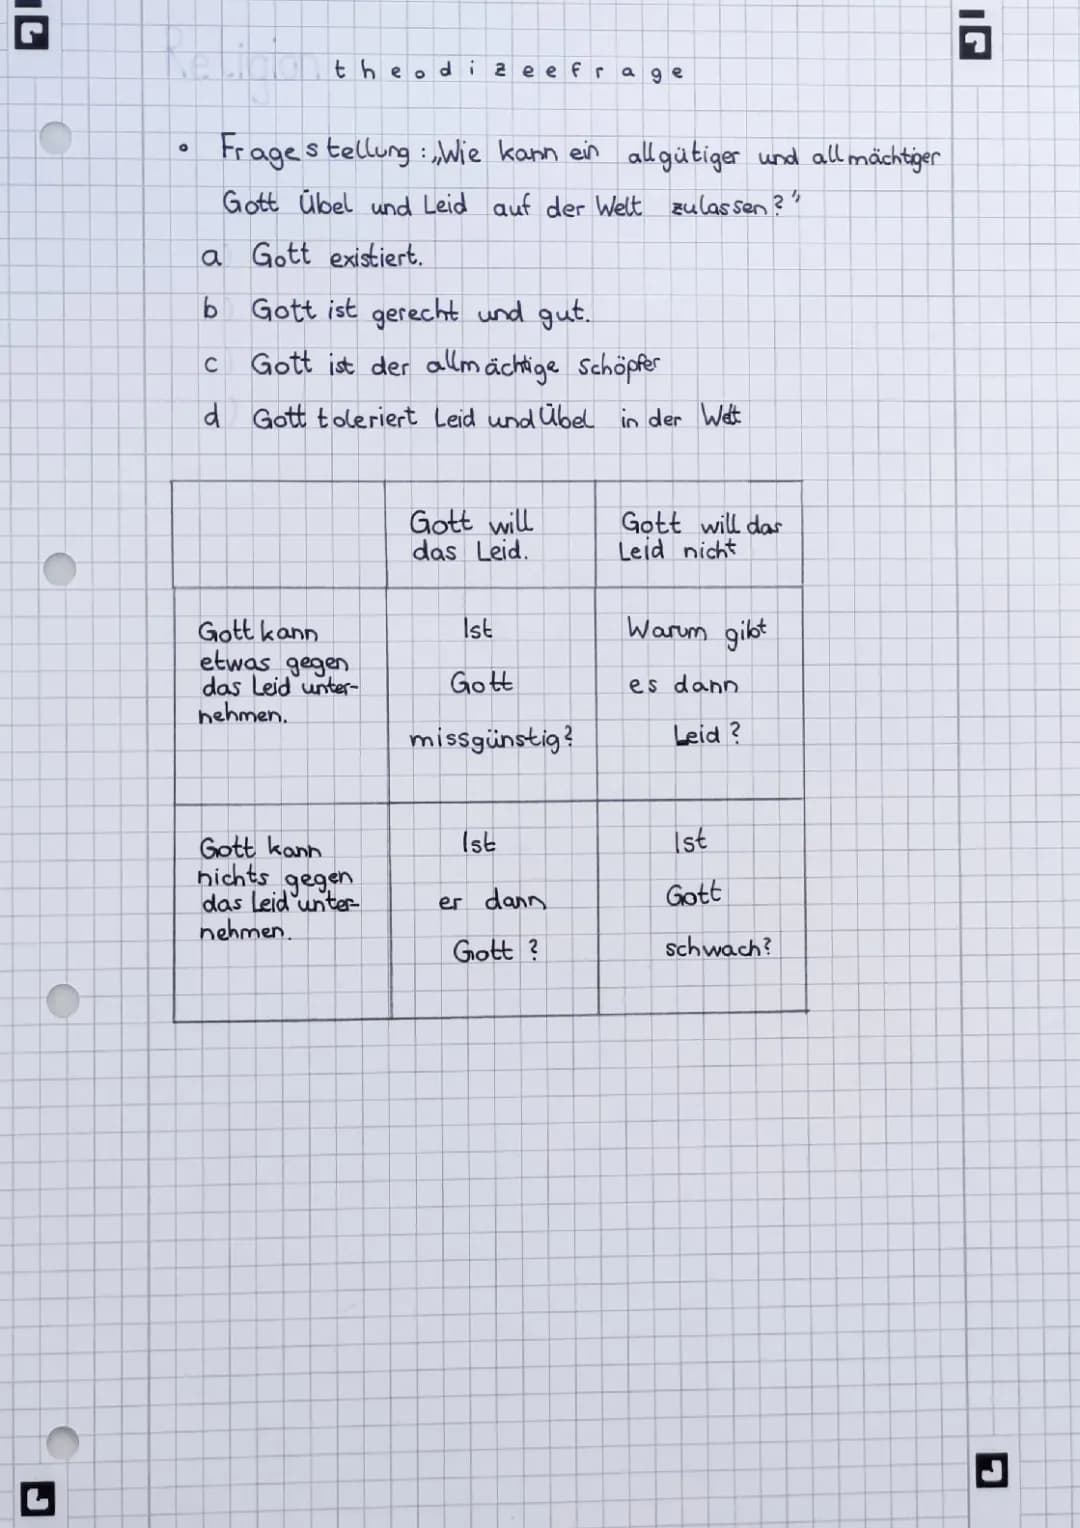 Religion
theodizeefrage
• Fragestellung: „Wie kann ein allgütiger und allmächtiger
Gott Übel und Leid auf der Welt zulassen?"
a Gott existiert.
b Gott ist gerecht und gut.
c Gott ist der allmächtige Schöpfer
d Gott toleriert Leid und Übel in der Welt
Gott will
das Leid.
Gott will das
Leid nicht
Gott kann
etwas gegen
das Leid unter-
nehmen.
Ist
Gott
missgünstig?
Warum gibt
es dann
Leid?
Gott kann
nichts gegen
das Leid unter-
nehmen.
Ist
er dann
Gott?
Ist
Gott
schwach?